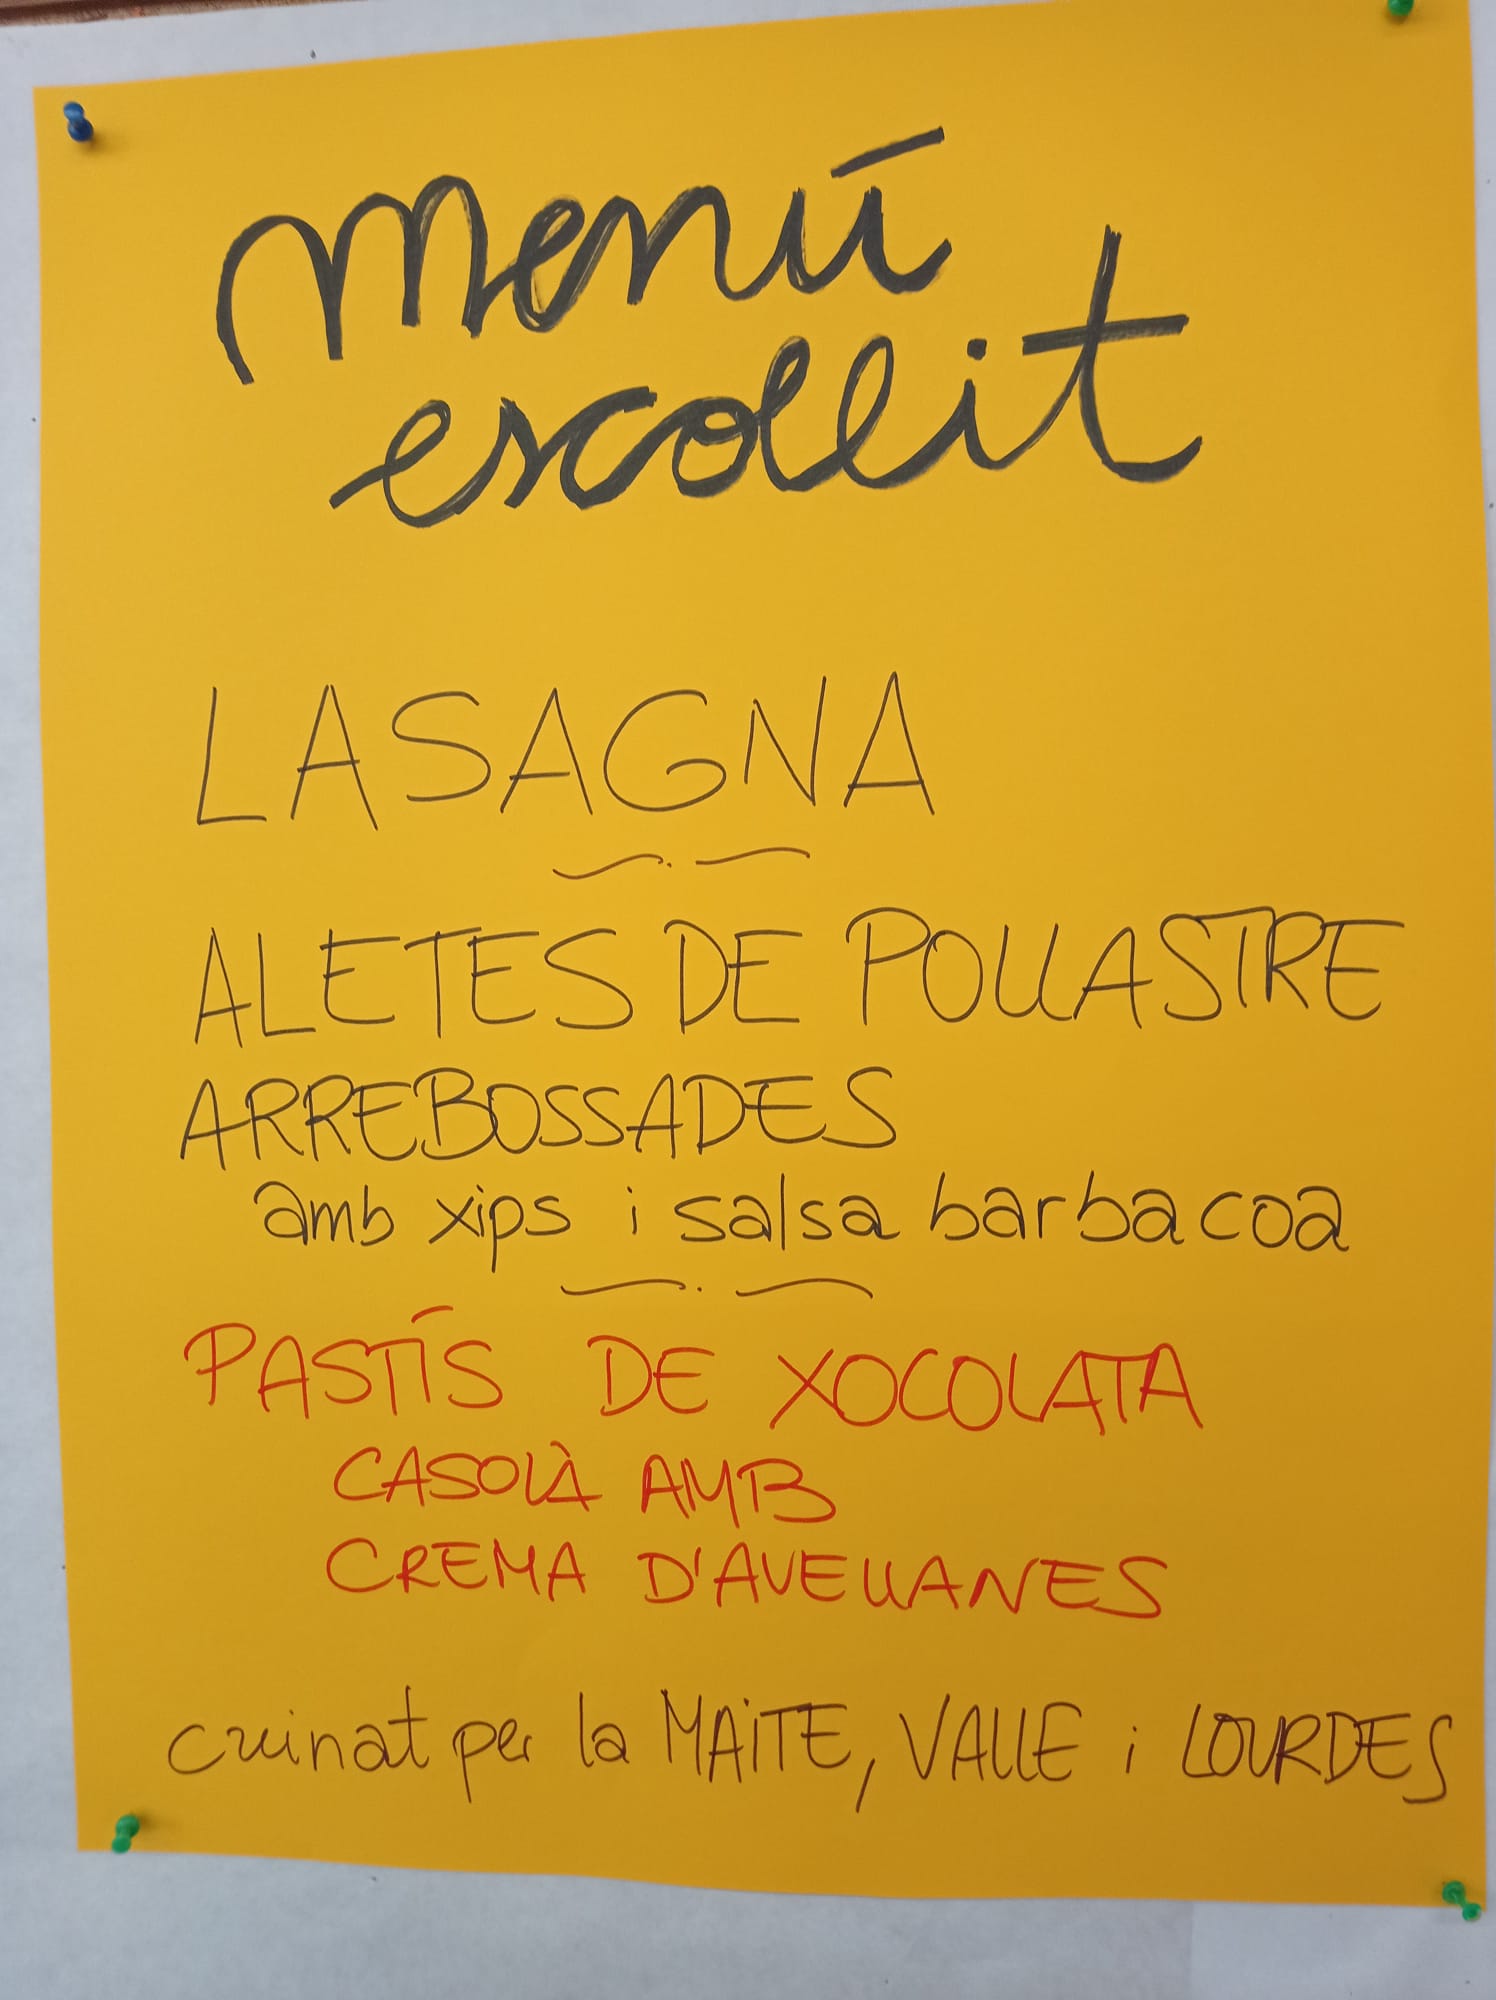 Menú
escollit
LASAGNA
ALETES DE POLLASTRE
ARREBOSSADES
amb xips i salsa barbacoa
PASTÍS DE XOCOLATA
CASOLÀ AMB
CREMA D'AVELLANES
cuinat per la MAiTE, VALLE i LOURDES